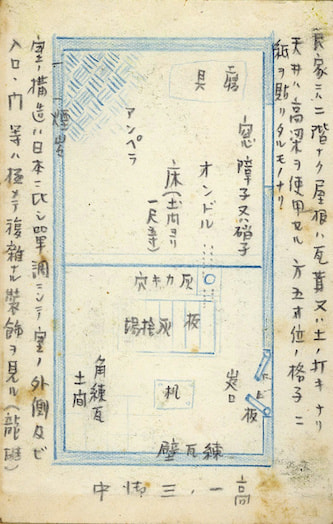 民家ニハ二階ナク屋根ハ瓦葺又ハ土ノ打キナリ
天井ハ高梁ヲ使用スル 方五寸位ノ格子ニ
紙ヲ貼リタルモノナリ
窓 障子又ハ硝子
オンドル
床(土間ヨリ
アンペラ
灰カキ穴
板
灰捨場
机
角練瓦
土間
練瓦壁
室ノ構造ハ日本ニ比シ単調ニシテ室ノ外側及ビ
入口、門 等ハ極メテ複雑ナル装飾ヲ見ル
高一、三